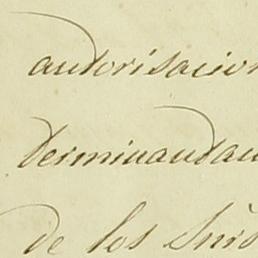 autorisacion
terminaudau
de los Snrs